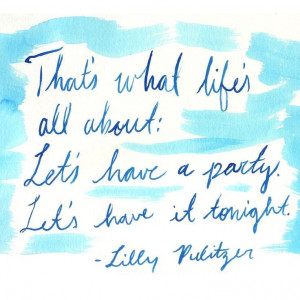 That's what life's
all about:
Let's have a party.
Let's have it tonight.
-Lilly Pulitzer